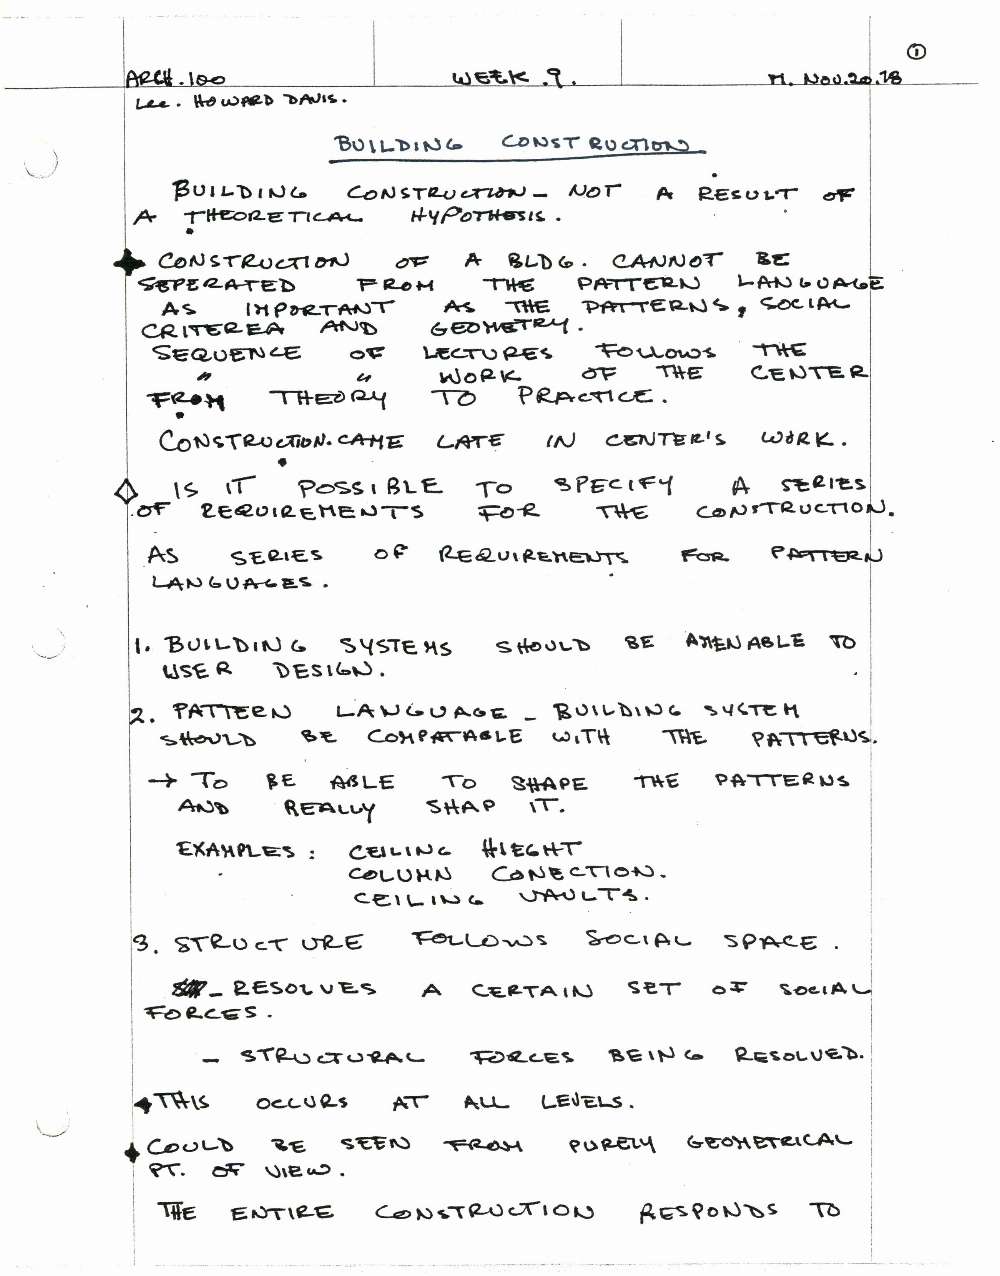 ①
ARCH.100 WEEK.9. M. NOV.20.78
Lec. HOWARD DAVIS.
BUILDING CONSTRUCTION
BUILDING CONSTRUCTION - NOT A RESULT OF
A THEORETICAL HYPOTHESIS.
CONSTRUCTION OF A BLDG. CANNOT BE
SEPERATED FROM THE PATTERN LANGUAGE
AS IMPORTANT AS THE PATTERNS, SOCIAL
CRITEREA AND GEOMETRY.
SEQUENCE OF LECTURES FOLLOWS THE
" " WORK OF THE CENTER
FROM THEORY TO PRACTICE.
CONSTRUCTION. CAME LATE IN CENTER'S WORK.
IS IT POSSIBLE TO SPECIFY A SERIES
OF REQUIREMENTS FOR THE CONSTRUCTION.
AS SERIES OF REQUIREMENTS FOR PATTERN
LANGUAGES.
1. BUILDING SYSTEMS SHOULD BE AMENABLE TO
USER DESIGN.
2. PATTERN LANGUAGE - BUILDING SYSTEM
SHOULD BE COMPATABLE WITH THE PATTERNS.
→ TO BE ABLE TO SHAPE THE PATTERNS
AND REALLY SHAP IT.
EXAMPLES: CEILING HIEGHT
COLUMN CONECTION.
CEILING VAULTS.
3. STRUCTURE FOLLOWS SOCIAL SPACE.
- RESOLVES A CERTAIN SET OF SOCIAL
FORCES.
- STRUCTURAL FORCES BEING RESOLVED.
THIS OCCURS AT ALL LEVELS.
COULD BE SEEN FROM PURELY GEOMETRICAL
PT. OF VIEW.
THE ENTIRE CONSTRUCTION RESPONDS TO